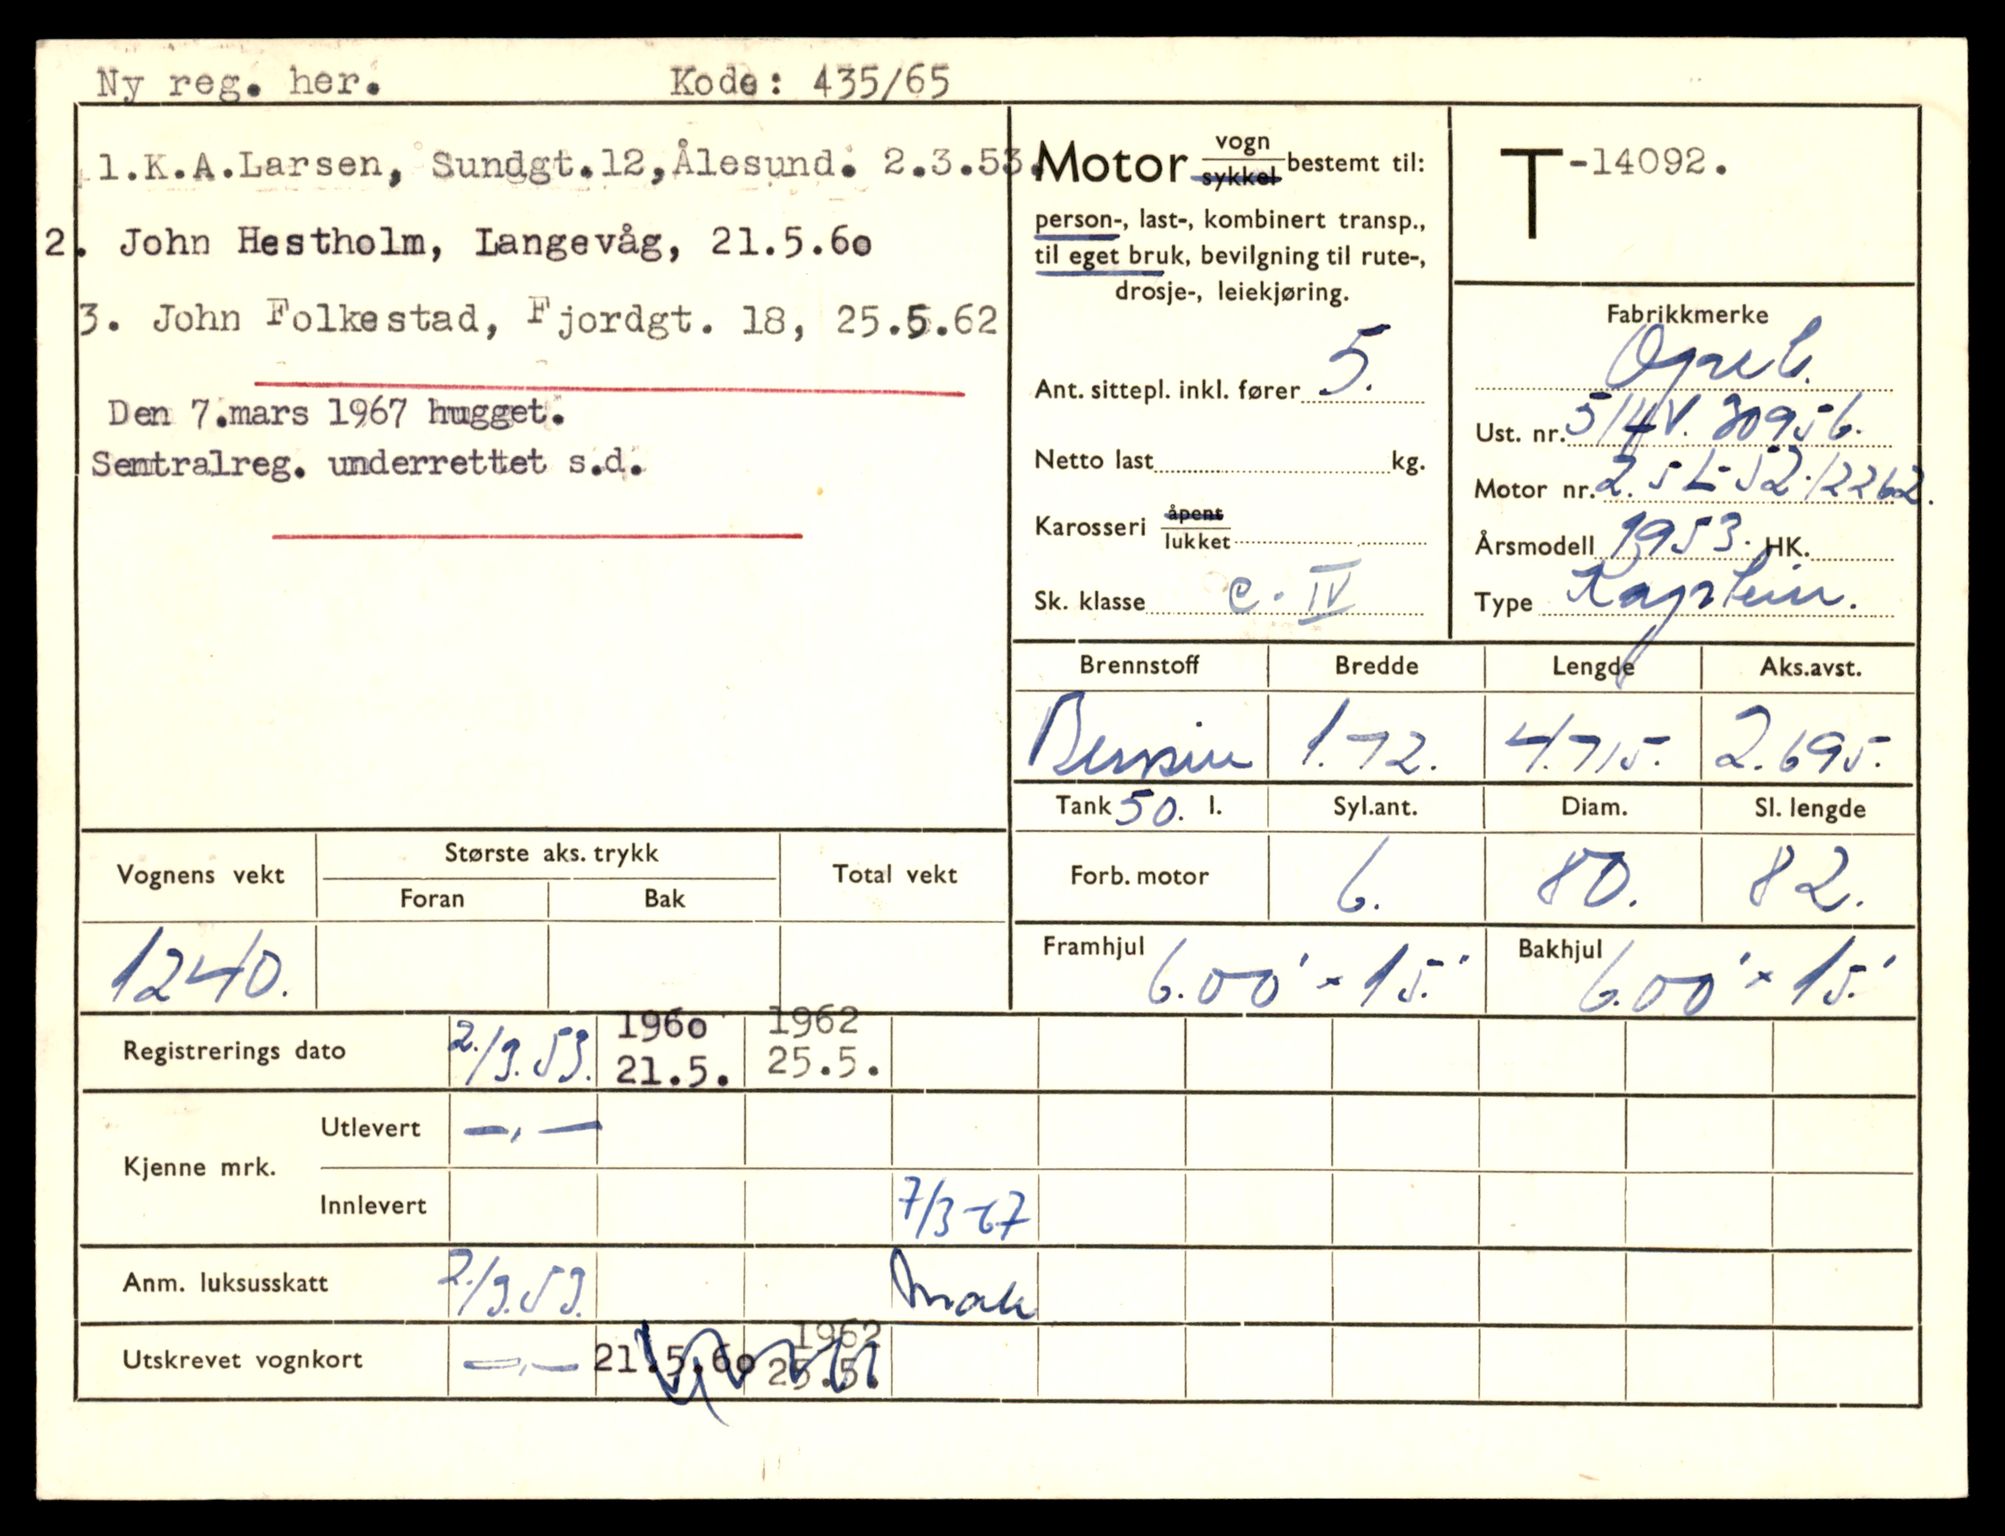 Ny reg. her. Kode: 435/65
1.K.A.Larsen, Sundgt.12,Ålesund. 2.3.53.
2. John Hestholm, Langevåg, 21.5.6o
3. John Folkestad, Fjordgt. 18, 25.5.62
Den 7.mars 1967 hugget.
Semtralreg. underrettet s.d.
Motor vogn sykkel bestemt til:
person-, last-, kombinert transp.,
til eget bruk, bevilgning til rute-,
drosje-, leiekjøring.
Ant. sittepl. inkl. fører 5.
Netto last kg.
Karosseri åpent lukket
Sk. klasse c. IV
T-14092.
Fabrikkmerke
Opel.
Ust. nr. 514V. 30956.
Motor nr. 2.5L-52.12262.
Årsmodell 1953. HK.
Type Kaptein.
Brennstoff Bredde Lengde Aks.avst.
Bensin 1.72. 4.715. 2.695.
Tank 50. l. Syl.ant. Diam. Sl. lengde
Forb. motor 6. 80. 82.
Framhjul 6.00' × 15.' Bakhjul 6.00' × 15.'
Vognens vekt Største aks. trykk Total vekt
Foran Bak
1240.
Registrerings dato 2./3.53. 196o 21.5. 1962 25.5.
Kjenne mrk. Utlevert —,—
Innlevert 7/3-67
Anm. luksusskatt 2./3.53.
Utskrevet vognkort —,— 21.5.6o 1962 25.5.